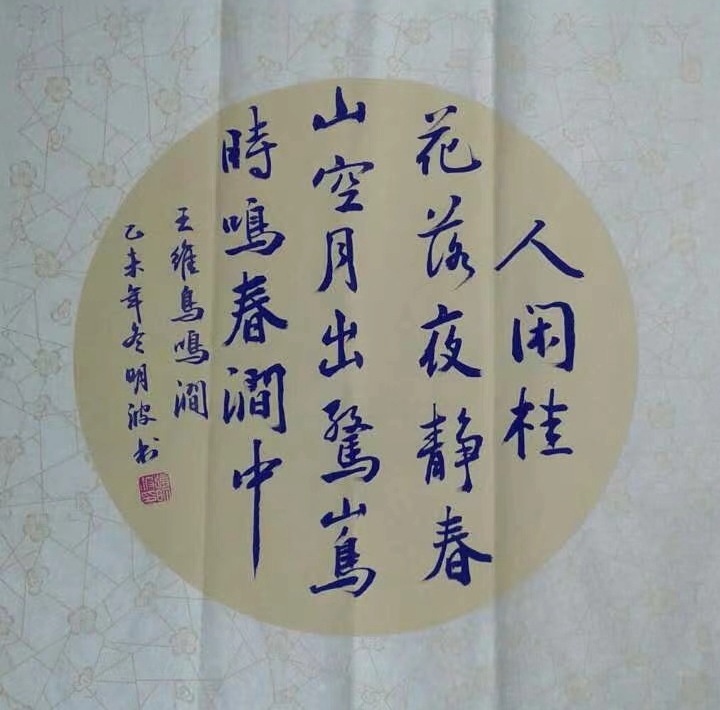 人闲桂
花落夜静春
山空月出驚山鳥
時鳴春澗中
王維鳥鳴澗
乙未年冬明波书